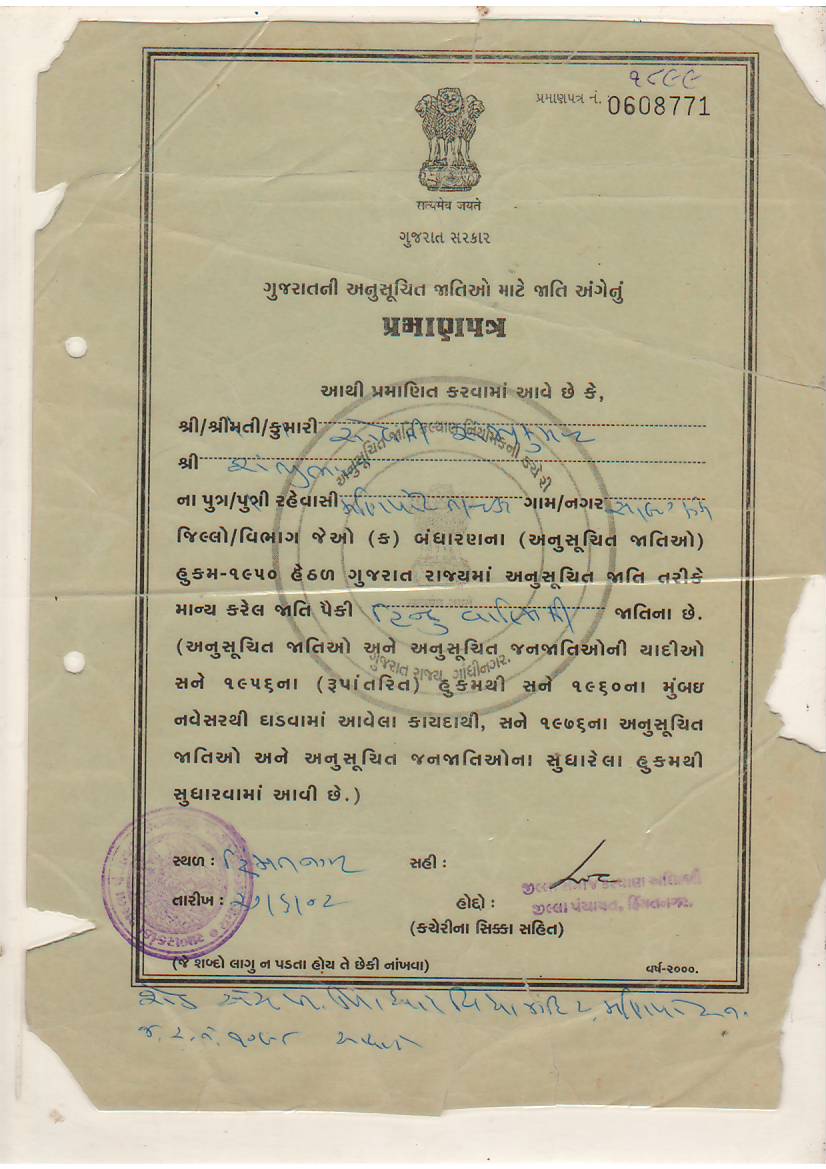 ૧૮૯૯
પ્રમાણપત્ર નં. 0608771
सत्यमेव जयते
ગુજરાત સરકાર
ગુજરાતની અનુસૂચિત જાતિઓ માટે જાતિ અંગેનું
પ્રમાણપત્ર
આથી પ્રમાણિત કરવામાં આવે છે કે,
શ્રી/શ્રીમતી/કુમારી
શ્રી
ના પુત્ર/પુત્રી રહેવાસી ગામ/નગર
જિલ્લો/વિભાગ જેઓ (ક) બંધારણના (અનુસૂચિત જાતિઓ)
હુકમ-૧૯૫૦ હેઠળ ગુજરાત રાજ્યમાં અનુસૂચિત જાતિ તરીકે
માન્ય કરેલ જાતિ પૈકી હિન્દુ વાલ્મિકી જાતિના છે.
(અનુસૂચિત જાતિઓ અને અનુસૂચિત જનજાતિઓની યાદીઓ
સને ૧૯૫૬ના (રૂપાંતરિત) હુકમથી સને ૧૯૬૦ના મુંબઇ
નવેસરથી ઘાડવામાં આવેલા કાયદાથી, સને ૧૯૭૬ના અનુસૂચિત
જાતિઓ અને અનુસૂચિત જનજાતિઓના સુધારેલા હુકમથી
સુધારવામાં આવી છે.)
અનુસૂચિત જાતિ કલ્યાણ નિયામકની કચેરી
ગુજરાત રાજ્ય, ગાંધીનગર.
સ્થળ : હિંમતનગર સહી :
તારીખ : હોદ્દો :
જીલ્લા સમાજ કલ્યાણ અધિકારી
જીલ્લા પંચાયત, હિંમતનગર.
(કચેરીના સિક્કા સહિત)
(જે શબ્દો લાગુ ન પડતા હોય તે છેકી નાંખવા) વર્ષ-૨૦૦૦.